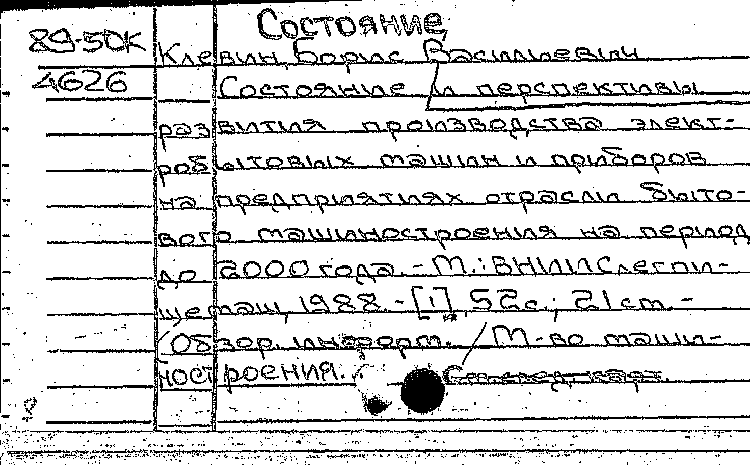 Состояние
89-50К
Клевин, Борис Васильевич
4626
Состояние и перспективы
развития производства элект-
робытовых машин и приборов
на предприятиях отрасли быто-
вого машиностроения на период
до 2000 года. - М.: ВНИИЛегпи-
щемаш, 1988. - [1], 52 с.; 21 см. -
(Обзор. информ. / М-во маши-
ностроения.
См. след. карт.